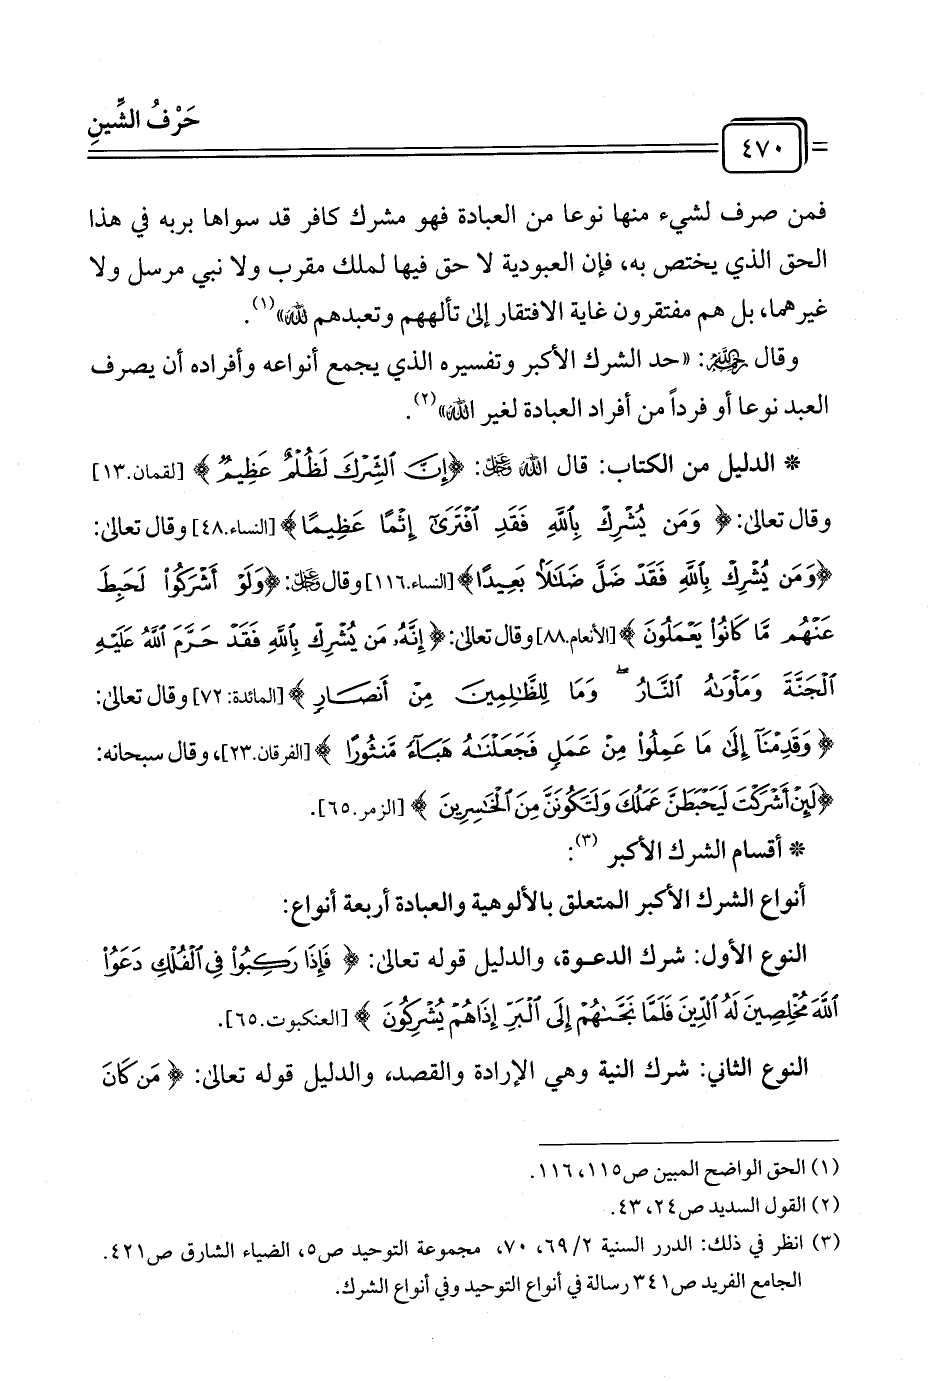 حَرْفُ الشِّينِ
٤٧٠
فمن صرف لشيء منها نوعا من العبادة فهو مشرك كافر قد سواها بربه في هذا
الحق الذي يختص به، فإن العبودية لا حق فيها لملك مقرب ولا نبي مرسل ولا
غيرهما، بل هم مفتقرون غاية الافتقار إلى تألههم وتعبدهم لله»(١).
وقال رحمه الله: «حد الشرك الأكبر وتفسيره الذي يجمع أنواعه وأفراده أن يصرف
العبد نوعا أو فرداً من أفراد العبادة لغير الله»(٢).
* الدليل من الكتاب: قال الله عز وجل: ﴿إِنَّ الشِّرْكَ لَظُلْمٌ عَظِيمٌ﴾ [لقمان.١٣]
وقال تعالىٰ: ﴿وَمَن يُشْرِكْ بِاللَّهِ فَقَدِ افْتَرَىٰٓ إِثْمًا عَظِيمًا﴾ [النساء.٤٨] وقال تعالىٰ:
﴿وَمَن يُشْرِكْ بِاللَّهِ فَقَدْ ضَلَّ ضَلَٰلًۢا بَعِيدًا﴾ [النساء.١١٦] وقال عز وجل: ﴿وَلَوْ أَشْرَكُوا۟ لَحَبِطَ
عَنْهُم مَّا كَانُوا۟ يَعْمَلُونَ﴾ [الأنعام.٨٨] وقال تعالىٰ: ﴿إِنَّهُۥ مَن يُشْرِكْ بِاللَّهِ فَقَدْ حَرَّمَ اللَّهُ عَلَيْهِ
الْجَنَّةَ وَمَأْوَىٰهُ النَّارُ ۖ وَمَا لِلظَّٰلِمِينَ مِنْ أَنصَارٍ﴾ [المائدة: ٧٢] وقال تعالىٰ:
﴿وَقَدِمْنَآ إِلَىٰ مَا عَمِلُوا۟ مِنْ عَمَلٍ فَجَعَلْنَٰهُ هَبَآءً مَّنثُورًا﴾ [الفرقان.٢٣]، وقال سبحانه:
﴿لَئِنْ أَشْرَكْتَ لَيَحْبَطَنَّ عَمَلُكَ وَلَتَكُونَنَّ مِنَ الْخَٰسِرِينَ﴾ [الزمر.٦٥].
* أقسام الشرك الأكبر (٣):
أنواع الشرك الأكبر المتعلق بالألوهية والعبادة أربعة أنواع:
النوع الأول: شرك الدعوة، والدليل قوله تعالىٰ: ﴿فَإِذَا رَكِبُوا۟ فِي الْفُلْكِ دَعَوُا۟
اللَّهَ مُخْلِصِينَ لَهُ الدِّينَ فَلَمَّا نَجَّىٰهُمْ إِلَى الْبَرِّ إِذَا هُمْ يُشْرِكُونَ﴾ [العنكبوت.٦٥].
النوع الثاني: شرك النية وهي الإرادة والقصد، والدليل قوله تعالىٰ: ﴿مَن كَانَ
(١) الحق الواضح المبين ص١١٥، ١١٦.
(٢) القول السديد ص٢٤، ٤٣.
(٣) انظر في ذلك: الدرر السنية ٢/ ٦٩، ٧٠، مجموعة التوحيد ص٥، الضياء الشارق ص٤٢١.
الجامع الفريد ص٣٤١ رسالة في أنواع التوحيد وفي أنواع الشرك.